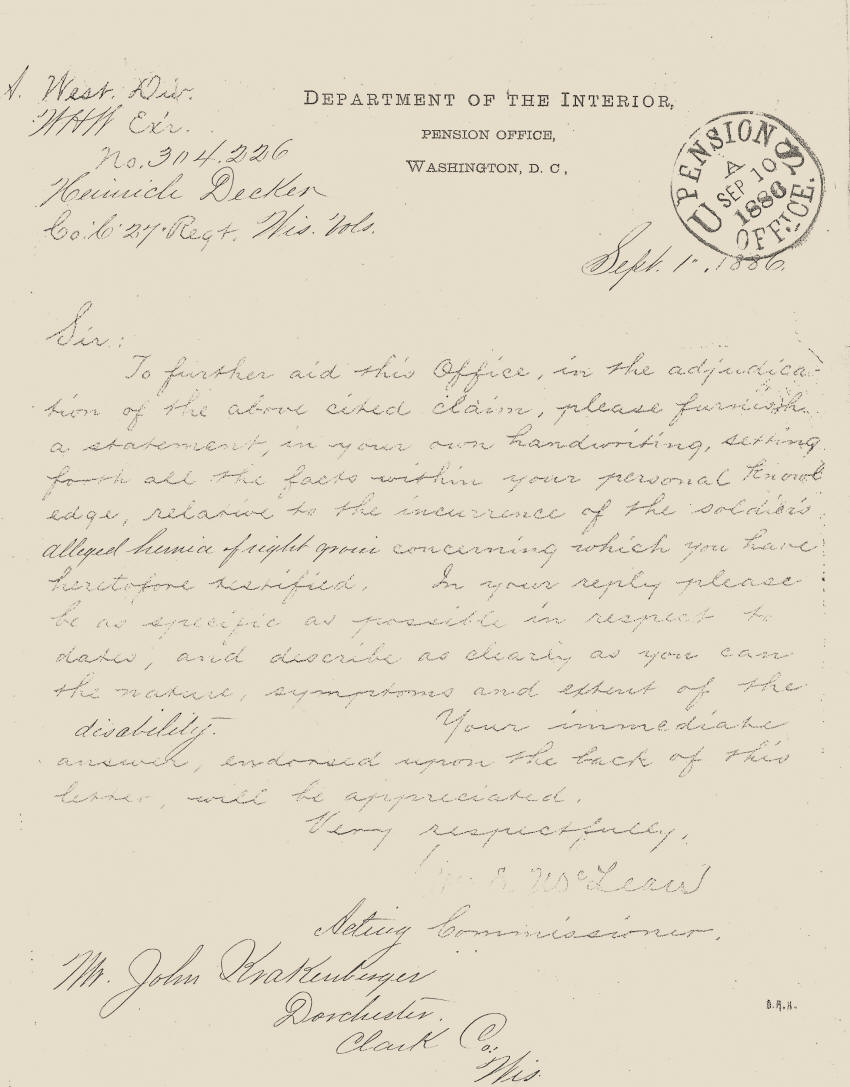 S. West. Div.
WHW Exr.
No. 304.226
Heinrich Decker
Co. C 27 Regt. Wis. Vols.
DEPARTMENT OF THE INTERIOR,
PENSION OFFICE,
WASHINGTON, D. C.,
U.S. PENSION OFFICE.
A
SEP 10
1886
Sept. 1", 1886.
Sir:
To further aid this Office, in the adjudica-
tion of the above cited claim, please furnish
a statement, in your own handwriting, setting
forth all the facts within your personal knowl
edge, relative to the incurrence of the soldier's
alleged hernia of right groin concerning which you have
heretofore testified. In your reply please
be as specific as possible in respect to
dates, and describe as clearly as you can
the nature, symptoms and extent of the
disability. Your immediate
answer, endorsed upon the back of this
letter, will be appreciated.
Very respectfully,
McLean
Acting Commissioner.
Mr. John Krakenberger
Dorchester.
Clark Co.
Wis.